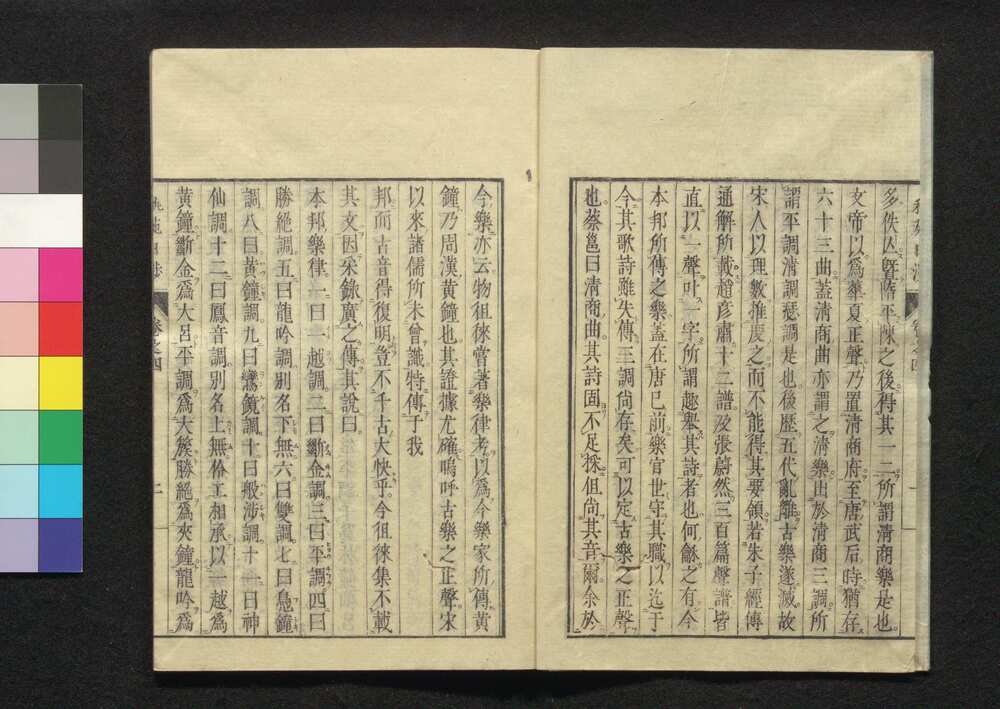 多佚亾既隋平陳之後得其一二所謂清商樂是也
文帝以爲華夏正聲乃置清商府至唐武后時猶存
六十三曲蓋清商曲亦謂之清樂出於清商三調所
謂平調清調瑟調是也後歷五代亂離古樂遂滅故
宋人以理數推度之而不能得其要領若朱子經傳
通解所載趙彦肅十二譜及張蔚然三百篇聲譜皆
直以一聲叶一字所謂趣舉其詩者也何龢之有今
本邦所傳之樂蓋在唐已前樂官世守其職以迄于
今其歌詩雖失傳三調尙存矣可以定古樂之正聲
也蔡邕曰清商曲其詩固不足採但尙其音爾余於
今樂亦云物徂徠嘗著樂律考以爲今樂家所傳黄
鐘乃周漢黄鐘也其證據尤確嗚呼古樂之正聲宋
以來諸儒所未曾識特傳于我
邦而古音得復明豈不千古大快乎今徂徠集不載
其文因采錄廣之傳其說曰
本邦樂律一曰一越調二曰斷金調三曰平調四曰
勝絕調五曰龍吟調別名下無六曰雙調七曰鳧鐘
調八曰黄鐘調九曰鸞鏡調十曰般涉調十一曰神
仙調十二曰鳳音調別名上無伶工相承以一越爲
黄鐘斷金爲大呂平調爲大簇勝絕爲夾鐘龍吟爲
卷之四
二